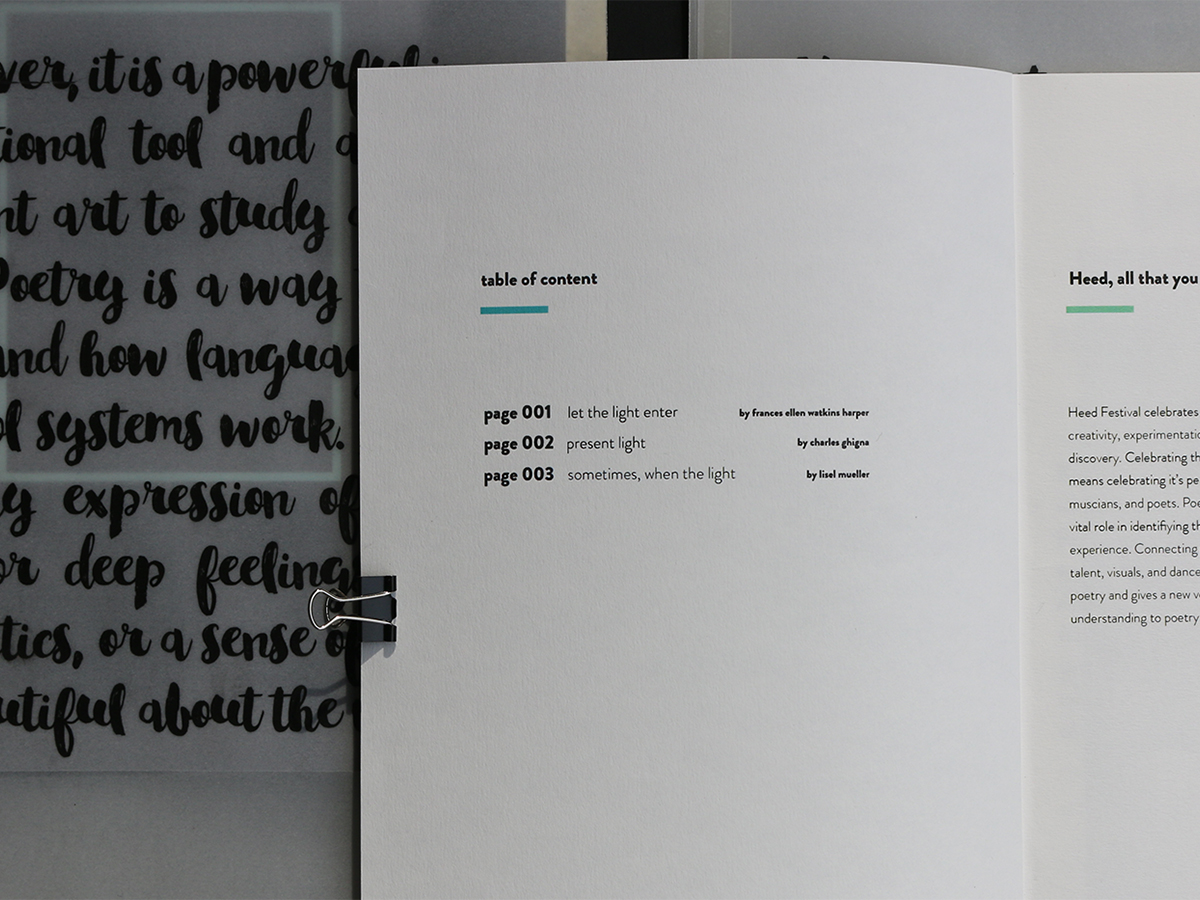 ver, it is a powerful
tional tool and a
nt art to study
Poetry is a way
and how languag
ol systems work.
ng expression of
or deep feeling
tics, or a sense of
autiful about the
table of content
page 001 let the light enter by frances ellen watkins harper
page 002 present light by charles ghigna
page 003 sometimes, when the light by lisel mueller
Heed, all that you
Heed Festival celebrates
creativity, experimentatio
discovery. Celebrating th
means celebrating it's pe
muscians, and poets. Poe
vital role in identifiying th
experience. Connecting
talent, visuals, and dance
poetry and gives a new v
understanding to poetry